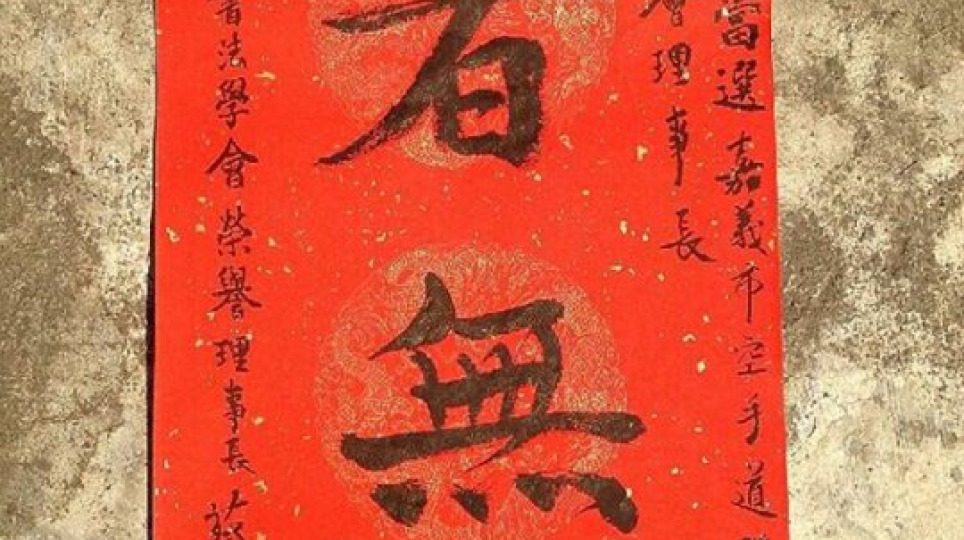 當選嘉義市空手道
會理事長
者無
書法學會榮譽理事長